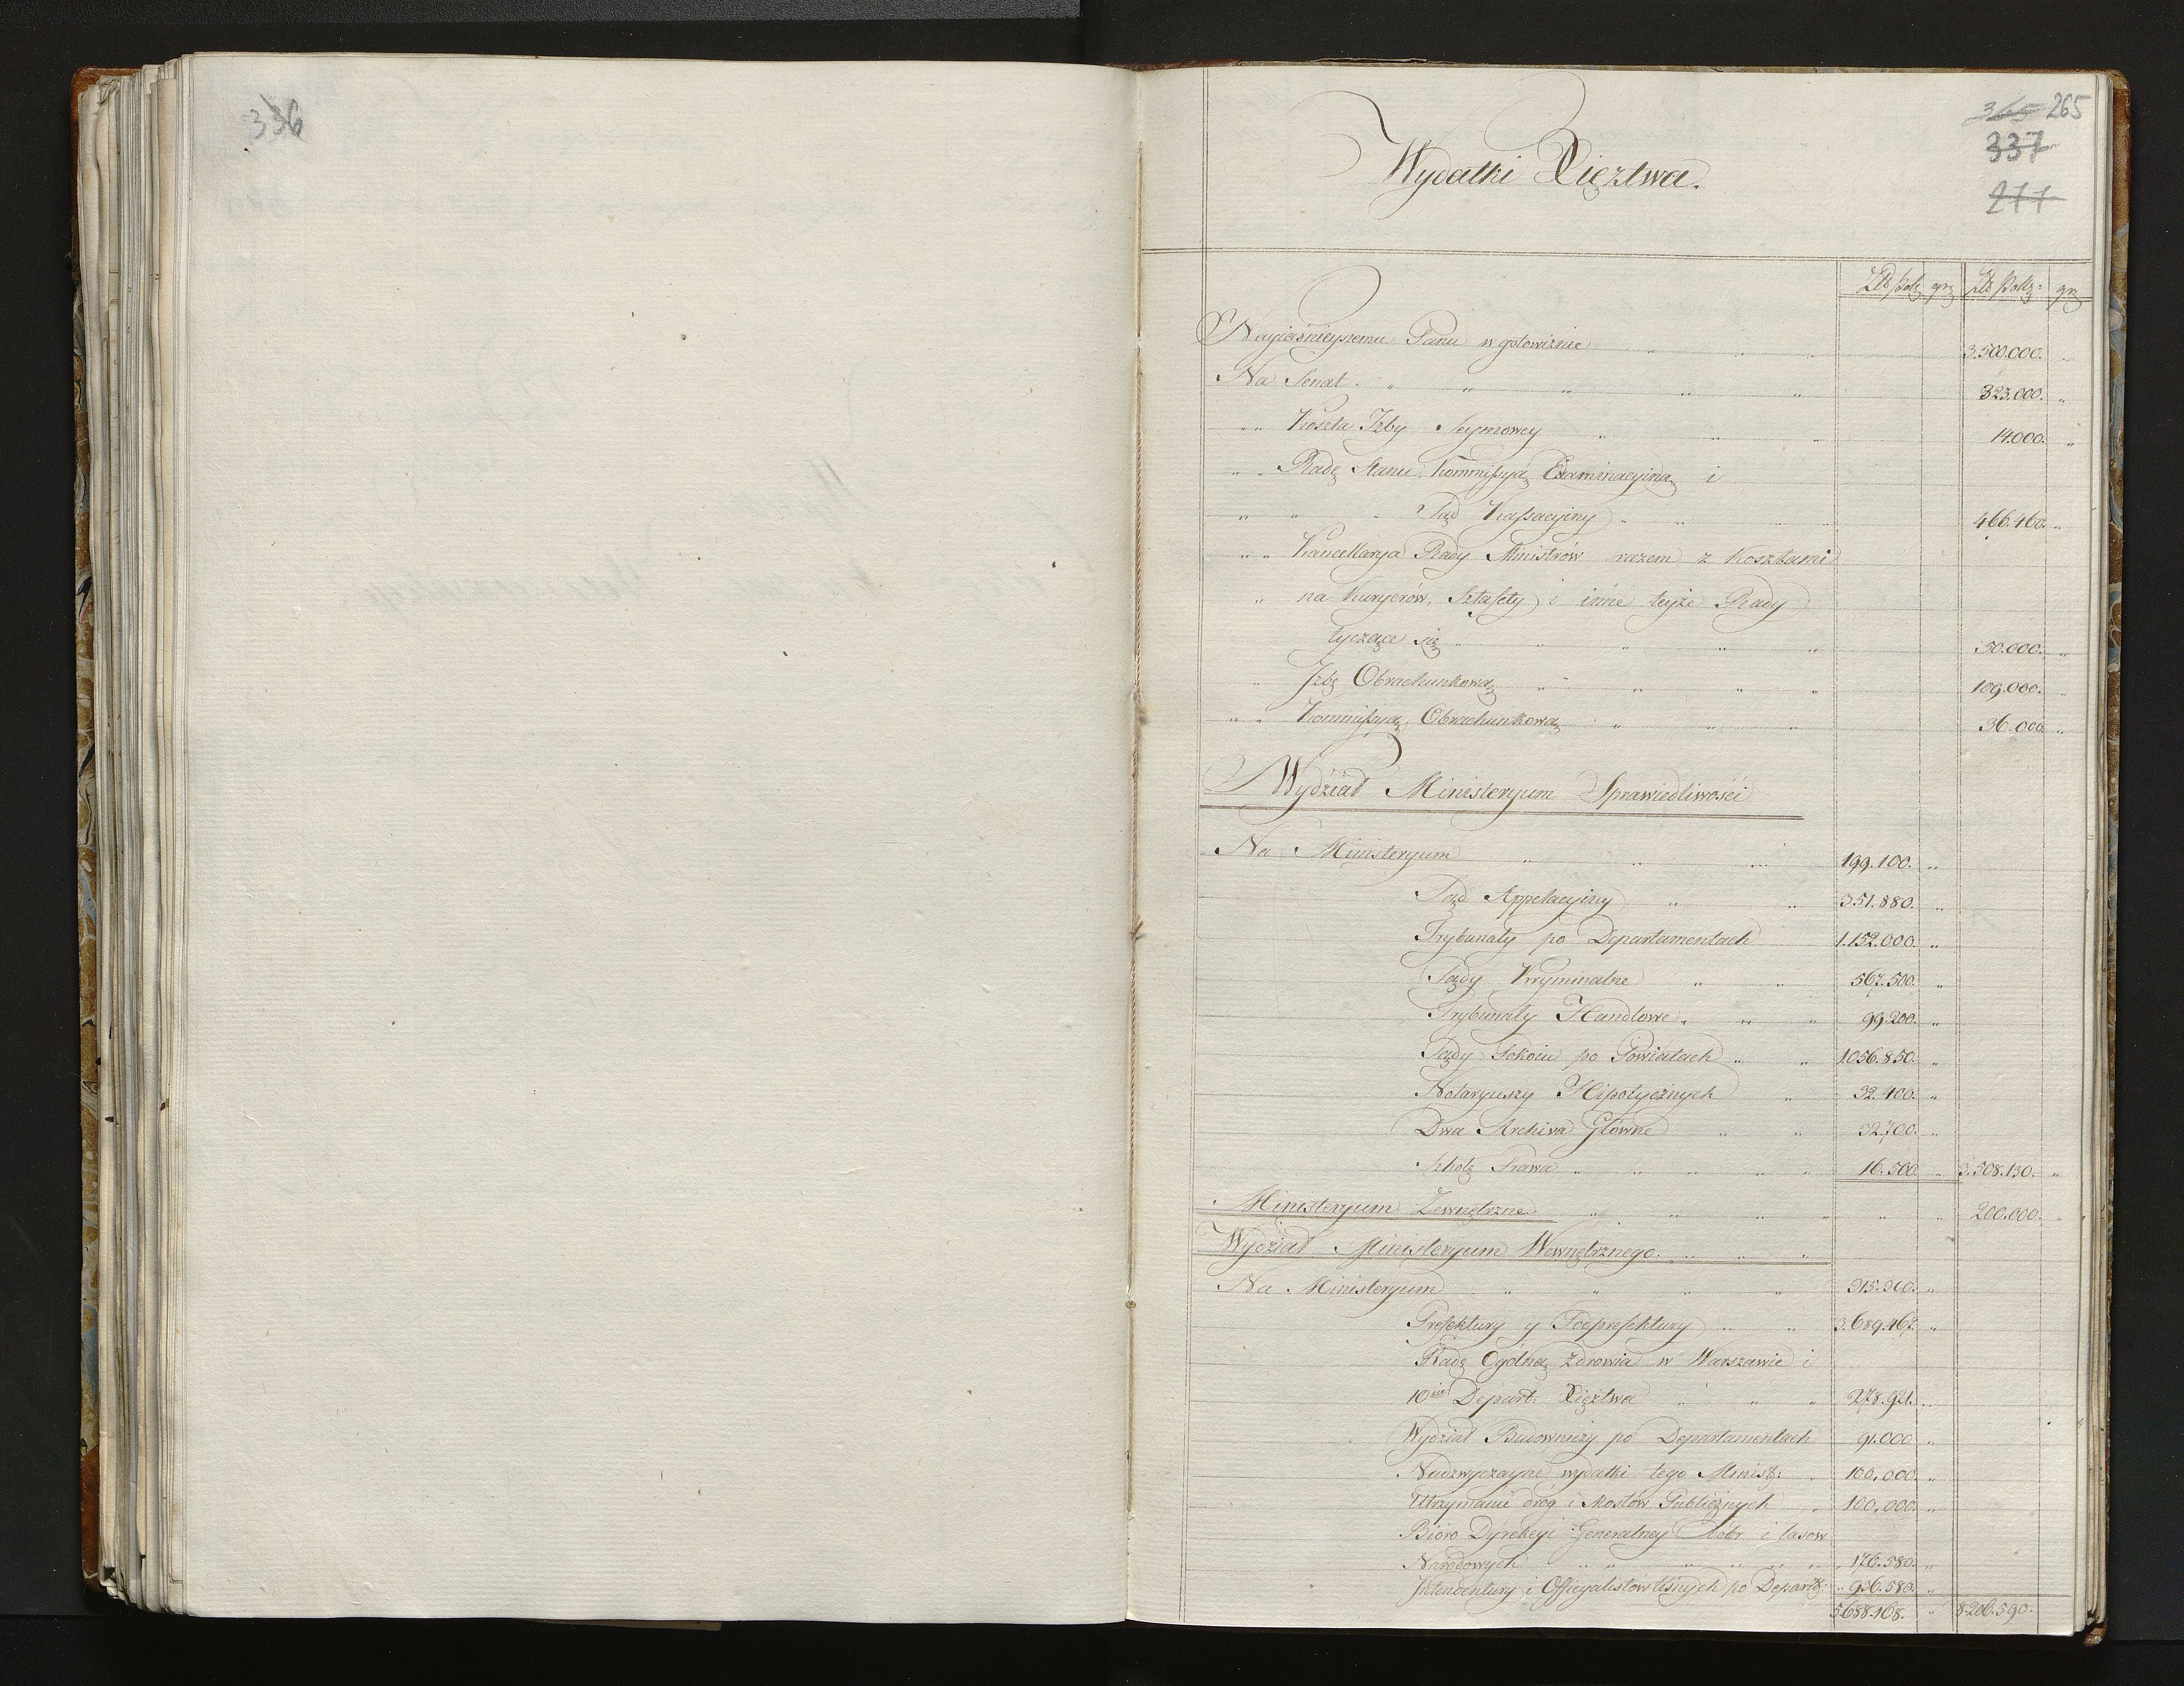 336
365 265
337
277
Wydatki Xięztwa.
Złł polz grz Złł Polz: grz
Nayiaśnieyszemu Panu w gotowiznie " " " 3.500.000. "
Na Senat. " " " " " 323.000. "
" " Koszta Izby Seymowey " " " 14.000. "
" " Radę Stanu, Kommissyą Examinacyiną i
" " " Sąd Kassacyiny " " " 466.460. "
" " Kancellarya Rady Ministrów razem z Kosztami
" na Kuryerów, Sztafety i inne teyże Rady
tyczące się " " " " " 50.000. "
" Izbę Obrachunkową " " " " 109.000. "
" " Kommissyą Obrachunkową " " " 36.000 "
Wydział Ministeryum Sprawiedliwości
Na Ministeryum " " " 199.100. "
Sąd Appelacyiny " " 351.880. "
Trybunały po Departamentach 1.152.000. "
Sądy Kryminalne " " 567.500. "
Trybunały Handlowe " " " 99.200. "
Sądy Pokoiu po Powiatach " " 1.056.850. "
Notaryuszy Hipotycznych " 32.400. "
Dwa Archiva Główne " " 32.700. "
Szkołę Prawa " " " " " 16.500 " 3.508.130. "
Ministeryum Zewnętrzne " " " " " " 200.000. "
Wydział Ministeryum Wewnętrznego. " " "
Na Ministeryum " " " " 315.260. "
Prefektury y Podprefektury " " 3.689.467. "
Radę Ogólną Zdrowia w Warszawie i
10ciu Depart: Xięztwa " " " 278.921. "
Wydział Budowniczy po Departamentach 91.000 "
Nadzwyczayne wydatki tego Minist: " 100,000. "
Utrzymanie dróg i Mostów Publicznych " 100,000. "
Bióro Dyrekcyi Generalney Dóbr i lasow
Narodowych " " " " " " 176.580. "
Intendentury i Officyalistów leśnych po Depart: " 936.580. "
5.688.168. " 8.206.590.